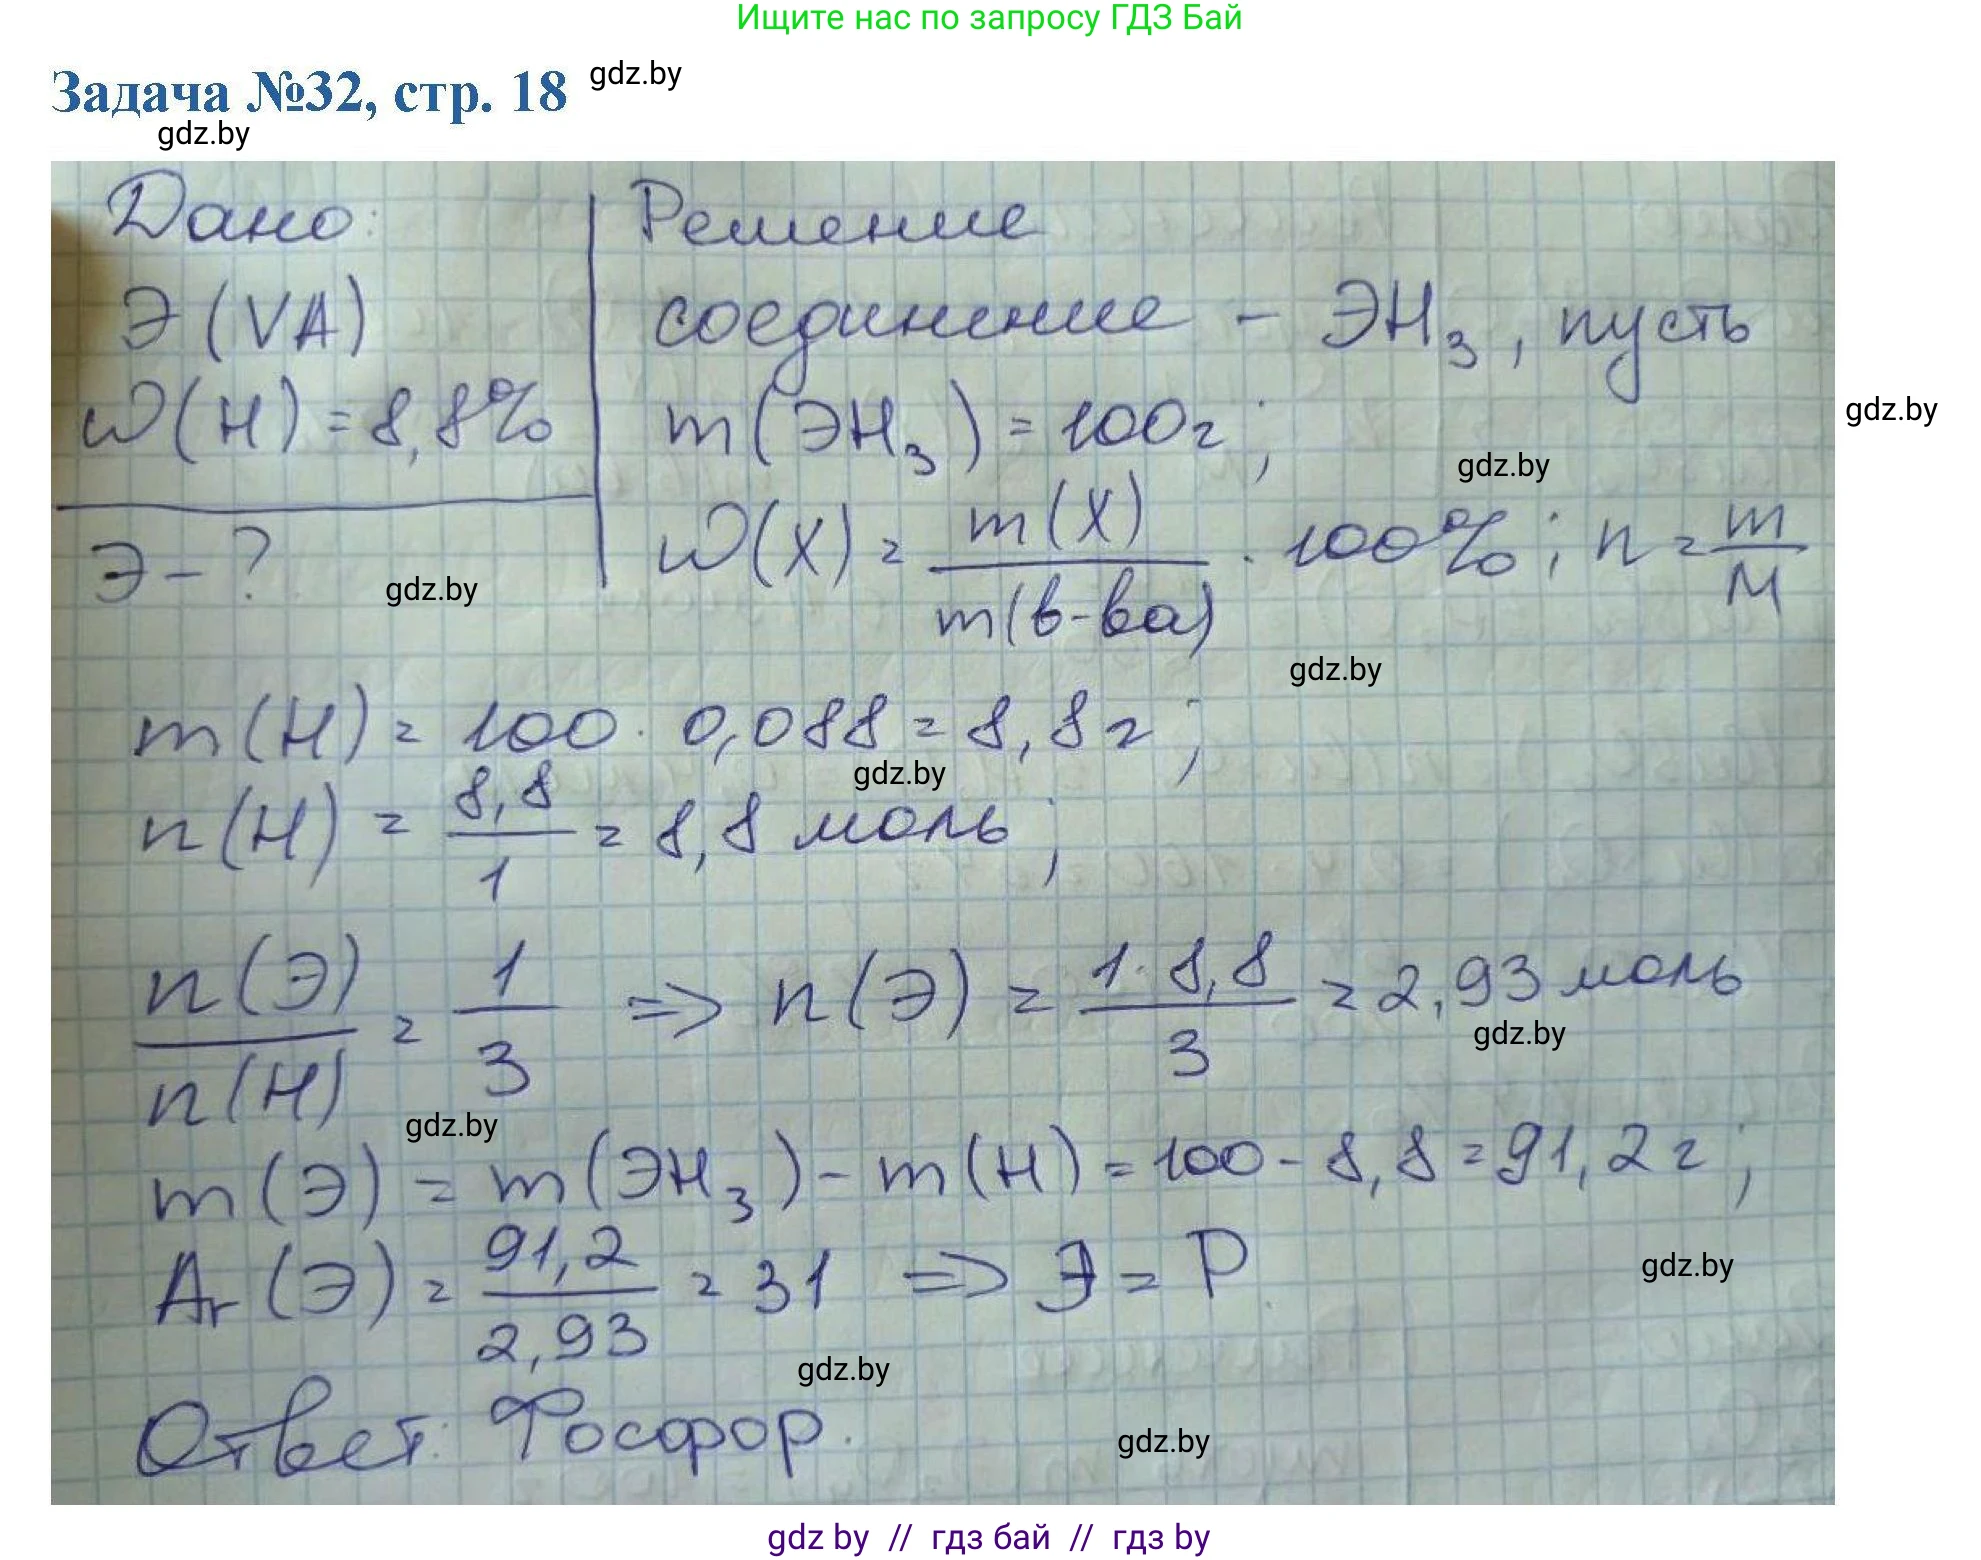 Ищите нас по запросу ГДЗ Бай
Задача №32, стр. 18 gdz.by
gdz.by
Дано: Решение
Э (VA) соединение – ЭН₃, пусть
ω(H) = 8,8% m(ЭН₃) = 100г; gdz.by
gdz.by
Э – ? ω(X) = m(X) / m(в-ва) · 100%; n = m / M
gdz.by
gdz.by
m(H) = 100 · 0,088 = 8,8г;
gdz.by
n(H) = 8,8 / 1 = 8,8 моль;
n(Э) / n(H) = 1 / 3 => n(Э) = 1·8,8 / 3 = 2,93 моль
gdz.by
gdz.by
m(Э) = m(ЭН₃) – m(H) = 100 – 8,8 = 91,2г;
Ar(Э) = 91,2 / 2,93 = 31 => Э = P gdz.by
gdz.by
Ответ: Фосфор.
gdz.by
gdz by // гдз бай // гдз by